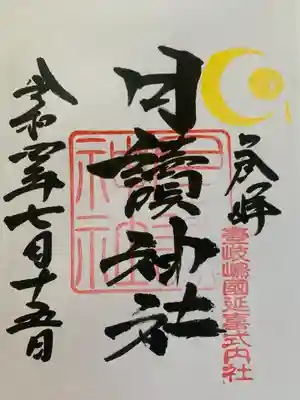 奉拝
壹岐嶋國延喜式内社
月讀神社
月讀
神社
令和四年七月十五日